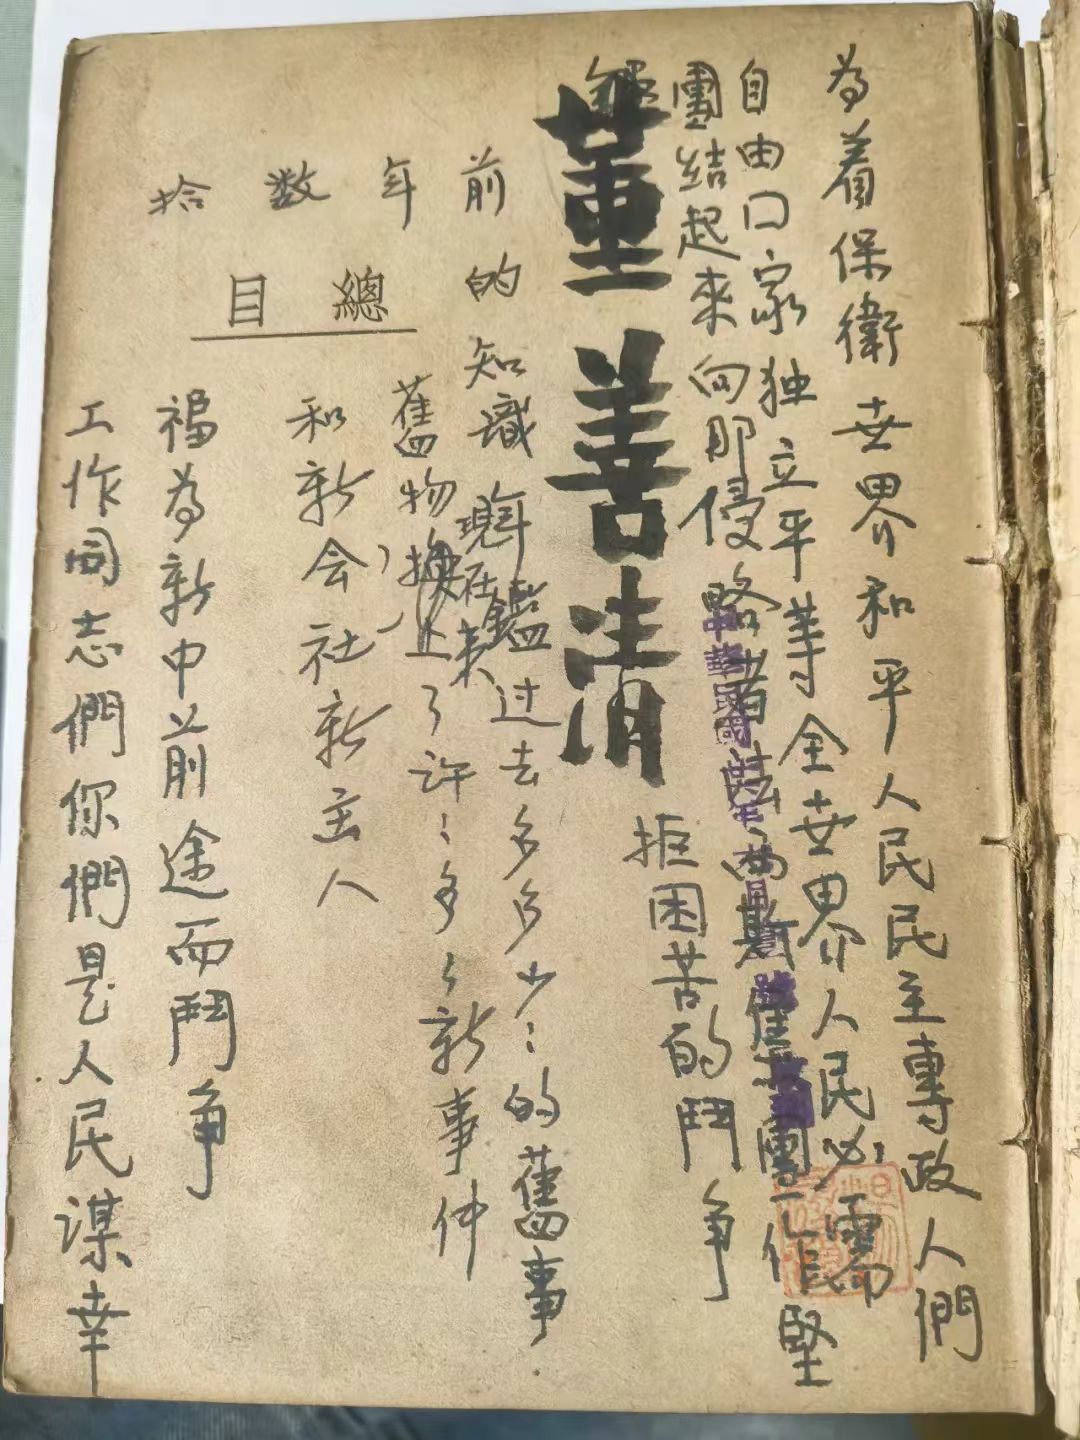 為着保衛世界和平人民民主專政人們
自由口家独立平等全世界人民必需
團結起來向那侵略者法西斯侵團作堅
拒困苦的鬥争
董善清
前的知識鑑过去多多少〻的舊事
現在來
舊物換上了許〻多〻新事件
和新会社新主人
拾数年
總目
福為新中前途而鬥争
工作同志們你們是人民謀幸